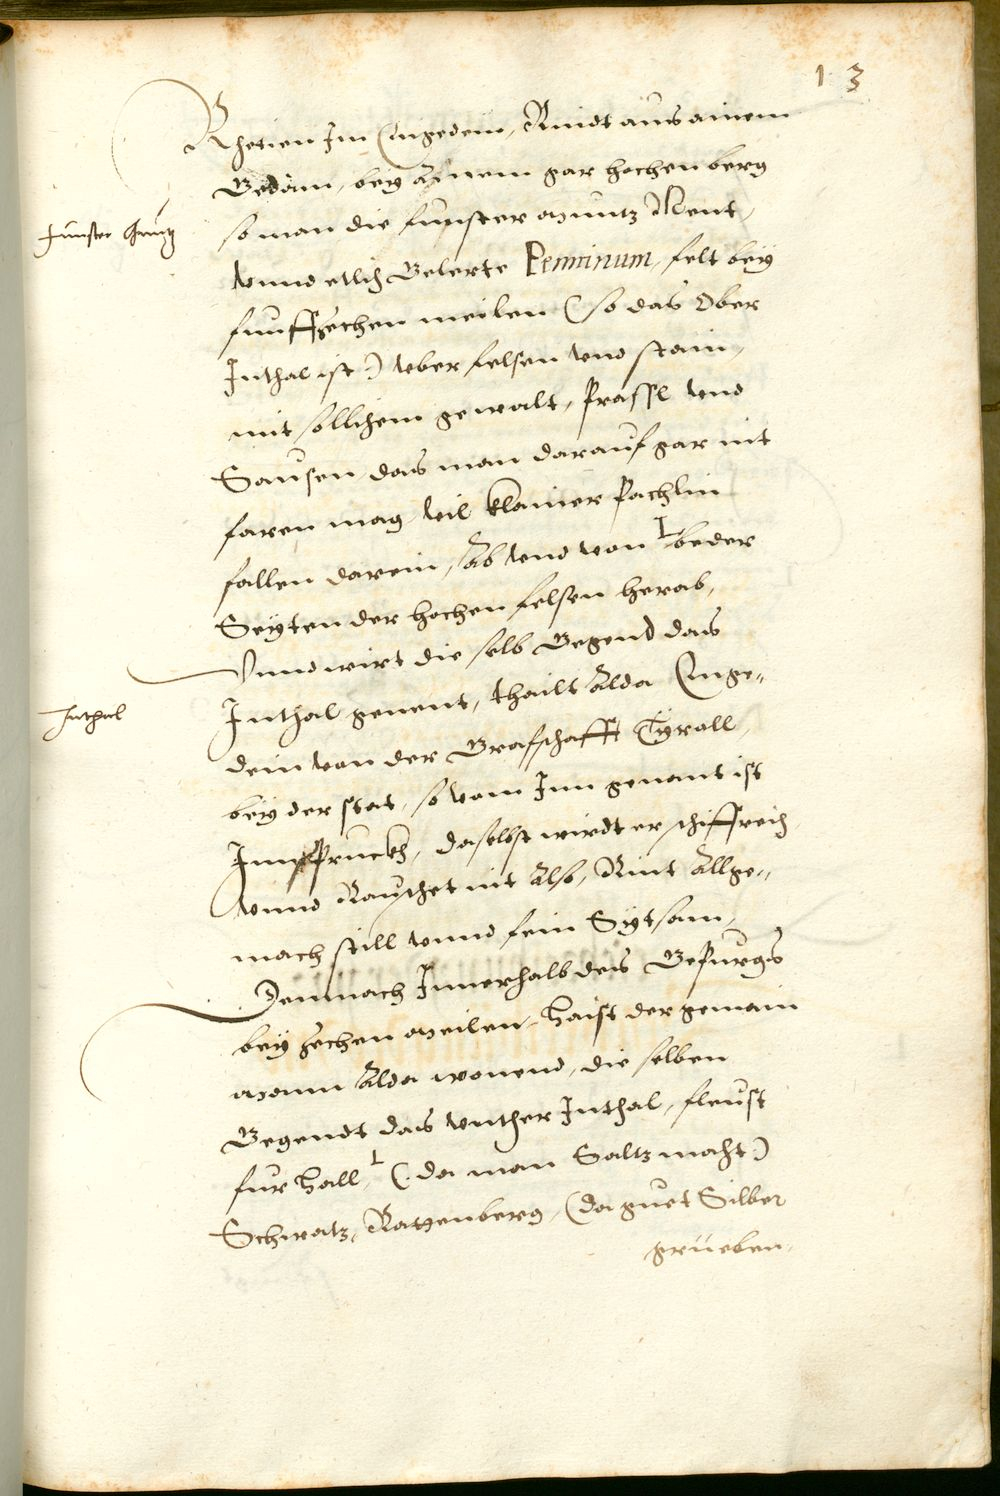 13
Rhetien Im Engedein, Rindt aus ainem
Bedäm, beÿ ainem gar hochen berg
so man die finster müntz Nent,
Finster Müntz
vnnd etlich Gelerte Penninum, felt beÿ
funffzechen meilen (so das Ober
Inthal ist) vber felsen vnd stain,
mit sollichem gewalt, Prassl vnd
Sausen, das man darauf gar nit
faren mag, vil klainer Pachlin
fallen darein, Ab vnd von beder
Seyten der hochen felsen herab,
Vnnd wirt die selb Gegend das
Inthal genent, thailt Alda Enge„
Inthal
dein von der Grafschafft Tÿroll,
beÿ der stat, so vom Inn genant ist
Innspruckh, daselbst wirdt er schiffreich,
vnnd Rauschet nit Also, Rint Allge„
mach still vnnd fein Sÿtsam,
Demnach Innerhalb des Gepurgs
beÿ zechen meilen, haist der gemain
mann Alda wonend, die selben
Gegendt das vnther Inthal, fleust
fur Hall, (da man Saltz macht)
Schwatz, Rattenberg, (da guet Silber
grueben,